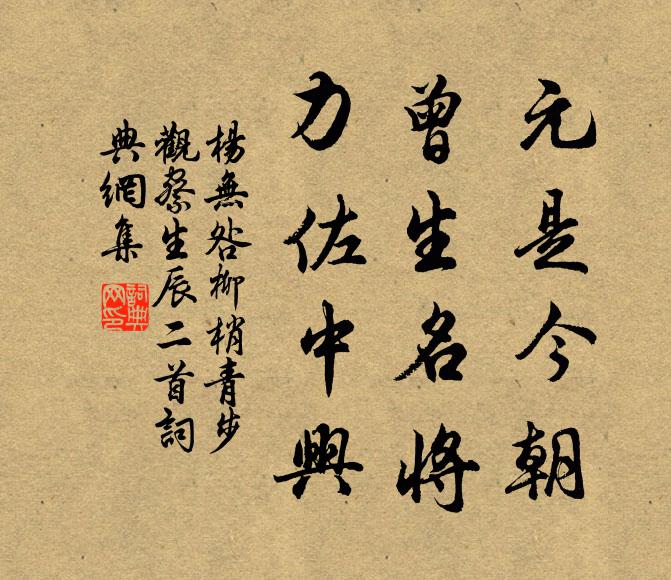 元是今朝
曾生名將
力佐中興
楊無咎柳梢青步
觀察生辰二首詞
典網集
詞典網印